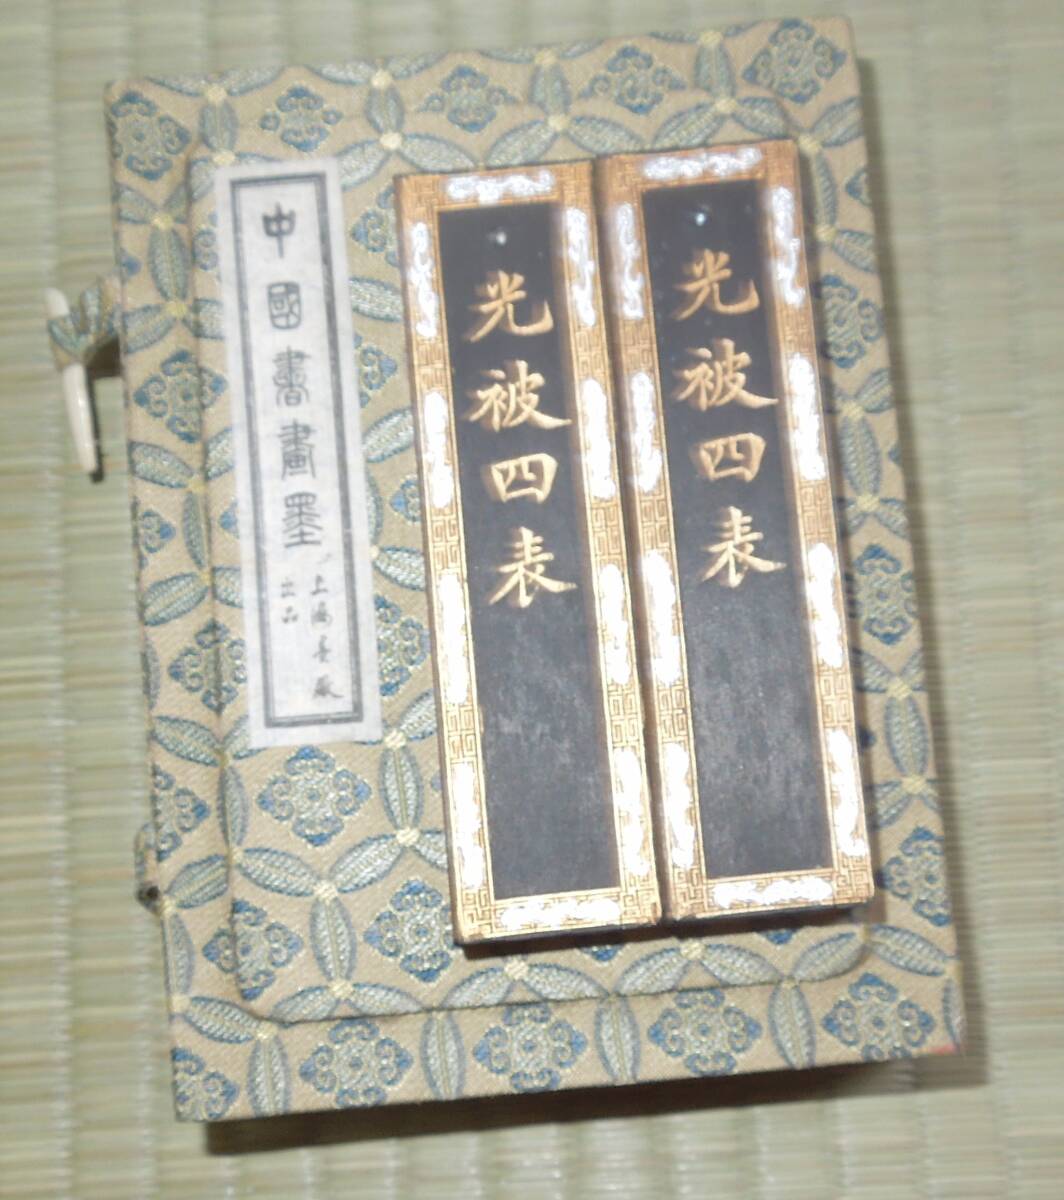 中國書畫墨
上海墨厰
出品
光被四表
光被四表